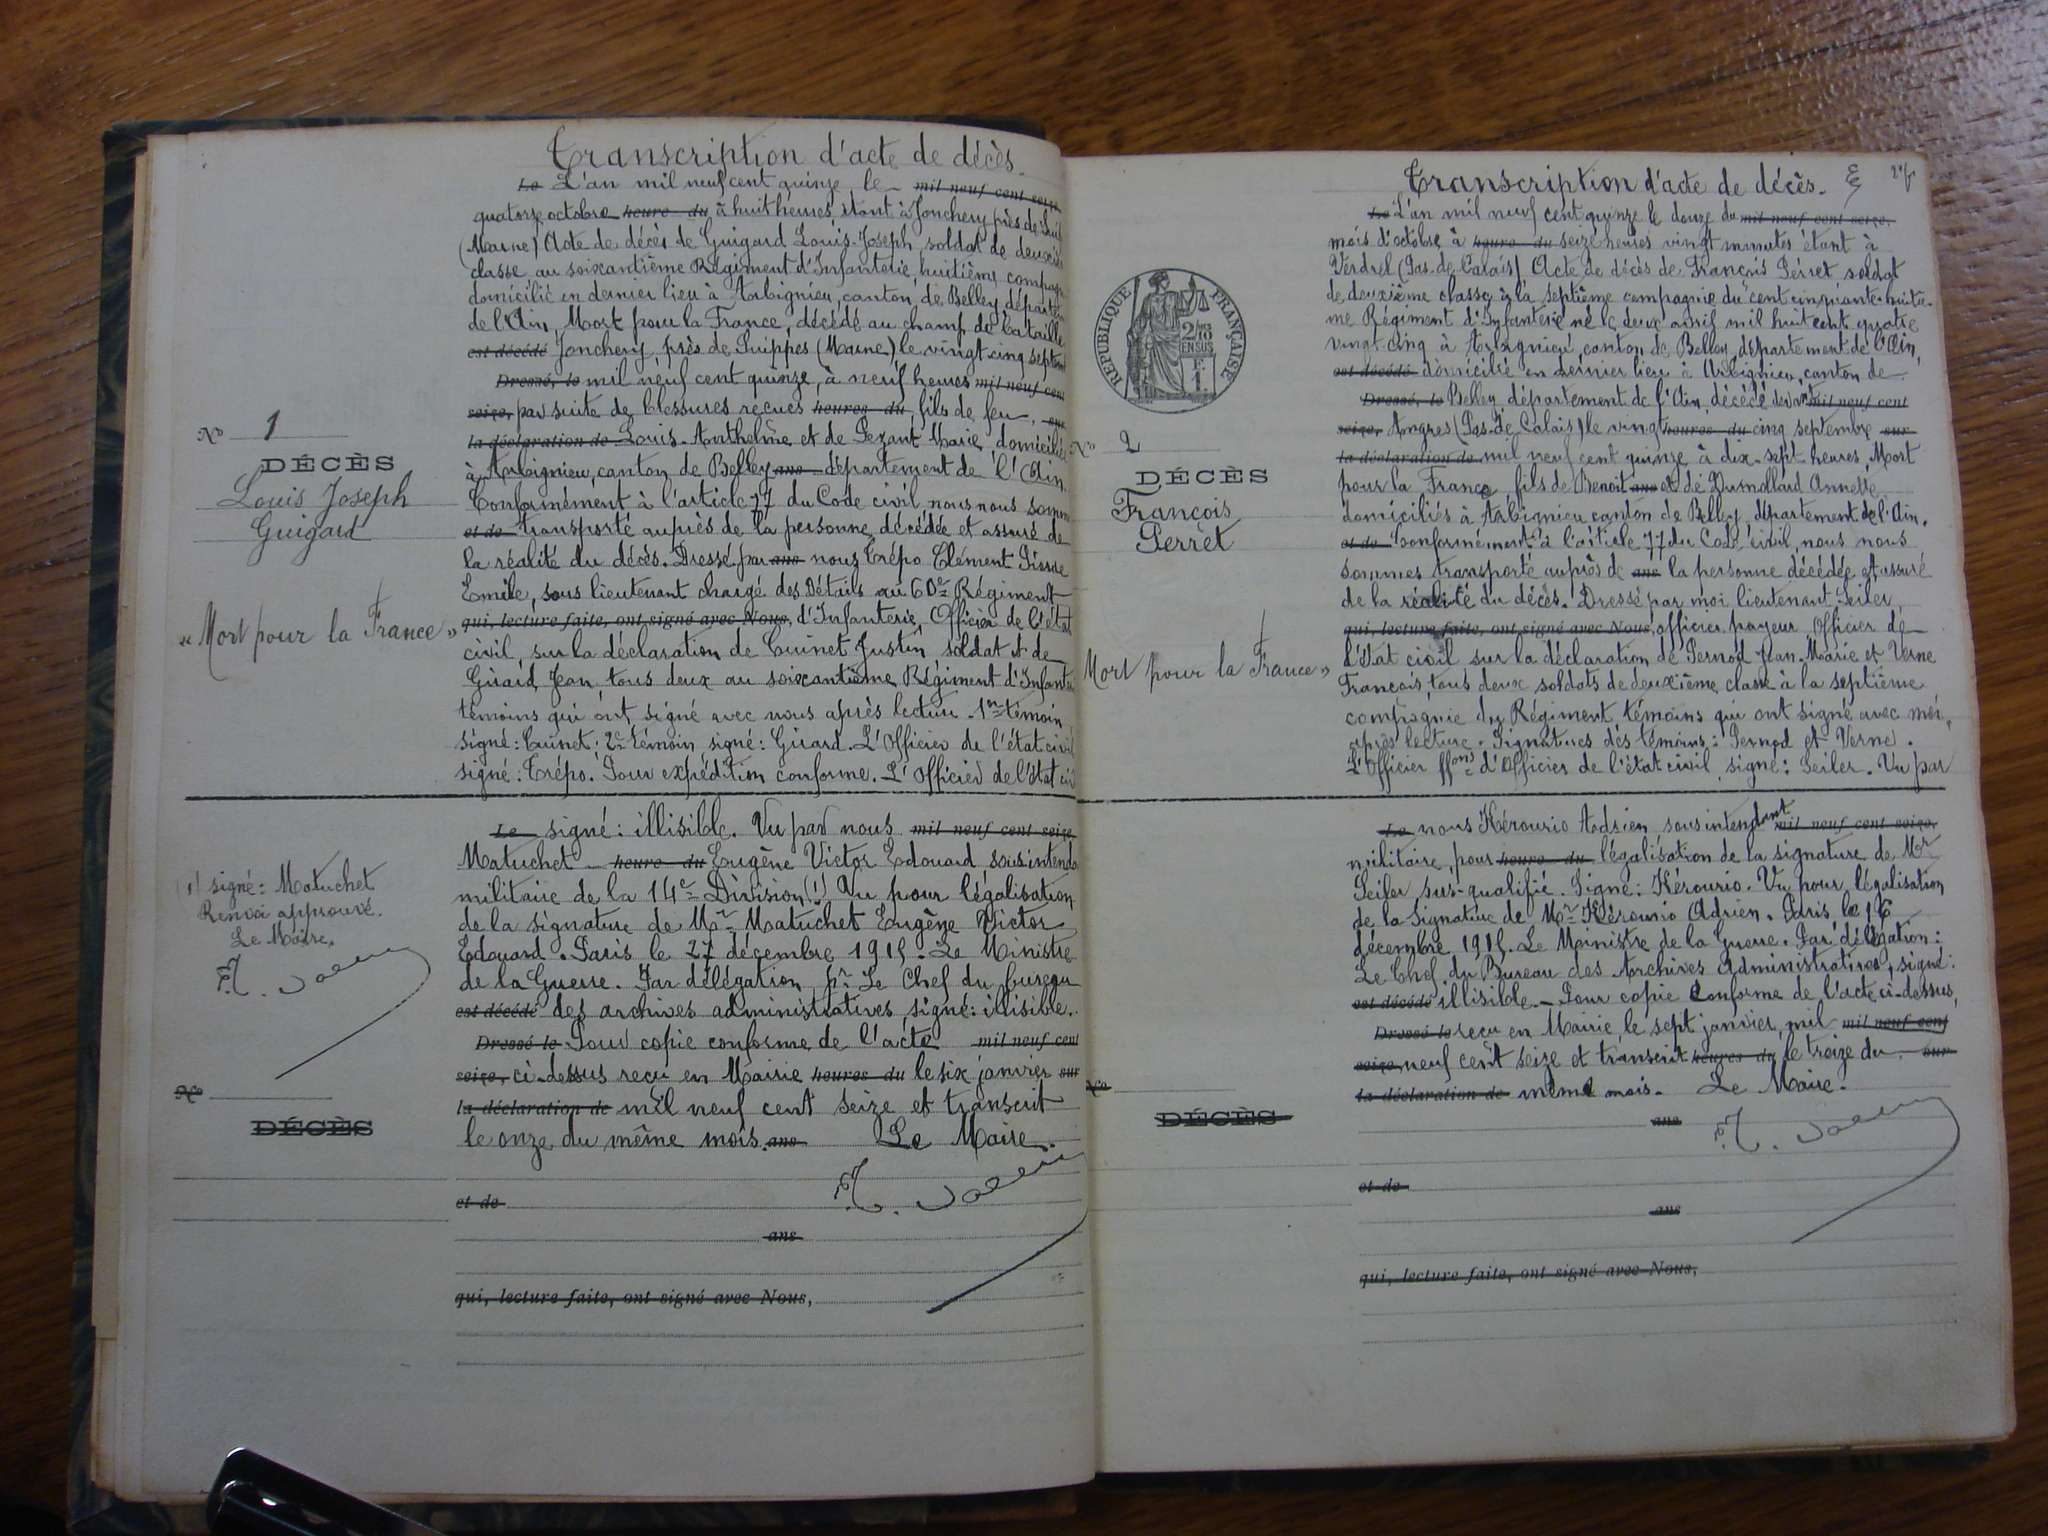 Transcription d'acte de décès.
Le L'an mil neuf cent quinze le mil neuf cent seize,
quatorze octobre heure du à huit heures, étant à Jonchery près de
(Marne) Acte de décès de Guigard Louis-Joseph, soldat de deuxième
classe au soixantième Régiment d'Infanterie, huitième compagn
domicilié en dernier lieu à Arbignieu, canton de Belley, départem
de l'Ain, Mort pour la France, décédé au champ de bataille
est décédé Jonchery, près de Suippes (Marne) le vingt-cinq septem
Dressé, le mil neuf cent quinze, à neuf heures mil neuf cent
seize, par suite de blessures reçues heures du fils de feu sur
la déclaration de Louis-Anthelme et de Pezant Marie, domiciliés
à Arbignieu, canton de Belley ans département de l'Ain.
Conformément à l'article 77 du Code civil nous nous somm
et de transporté auprès de la personne décédée et assuré de
la réalité du décès. Dressé par ans nous Crépo Clément Pierre
Emile, sous lieutenant chargé des Détails au 60e Régiment
qui, lecture faite, ont signé avec Nous, d'Infanterie, Officier de l'état
civil, sur la déclaration de Cuinet Justin soldat et de
Girard Jean, tous deux au soixantième Régiment d'Infante
témoins qui ont signé avec nous après lecture. 1er témoin
signé: Cuinet; 2e témoin signé: Girard. L'Officier de l'état civil
signé: Crépo. Pour expédition conforme. L'Officier de l'état civ
No 1
DÉCÈS
Louis Joseph
Guigard
« Mort pour la France »
Le signé: illisible. Vu par nous mil neuf cent seize,
Matuchet heure du Eugène Victor Edouard sousintenda
militaire de la 14e Division (1) Vu pour légalisation
de la signature de Mr Matuchet Eugène Victor
Edouard. Paris le 27 décembre 1915. Le Ministre
de la Guerre. Par délégation, pr Le Chef du bureau
est décédé des archives administratives, signé: illisible.
Dressé le Pour copie conforme de l'acte mil neuf cent
seize, ci-dessus reçu en Mairie heures du le six janvier sur
la déclaration de mil neuf cent seize et transcrit
le onze du même mois. ans Le Maire.
(1) signé: Matuchet
Renvoi approuvé.
Le Maire.
No
DÉCÈS
et de
ans
qui, lecture faite, ont signé avec Nous,
Transcription d'acte de décès.
Le L'an mil neuf cent quinze le douze du mil neuf cent seize,
mois d'octobre à heure du seize heures vingt minutes étant à
Verdrel (Pas-de-Calais) Acte de décès de François Perret soldat
de deuxième classe à la septième compagnie du cent cinquante-huitiè-
me Régiment d'Infanterie né le deux avril mil huit cent quatre
vingt cinq à Arbignieu, canton de Belley, département de l'Ain,
est décédé domicilié en dernier lieu à Arbignieu, canton de
Dressé, le Belley département de l'Ain, décédé devant mil neuf cent
seize, Angres (Pas-de-Calais) le vingt heures du cinq septembre sur
la déclaration de mil neuf cent quinze à dix-sept heures, Mort
pour la France fils de Benoit ans et de Dumollard Annette
domiciliés à Arbignieu canton de Belley, département de l'Ain.
et de Conformément à l'article 77 du Code civil, nous nous
sommes transporté auprès de ans la personne décédée et assuré
de la réalité du décès. Dressé par moi lieutenant Seiler
qui, lecture faite, ont signé avec Nous, officier payeur Officier de
l'Etat civil sur la déclaration de Pernod Jean-Marie et Verne
François tous deux soldats de deuxième classe à la septième
compagnie du Régiment, témoins qui ont signé avec moi,
après lecture. Signatures des témoins: Pernod et Verne.
L'Officier ffons d'Officier de l'état civil, signé: Seiler. Vu par
RÉPUBLIQUE FRANÇAISE
2/10
EN SUS
No 2
DÉCÈS
François
Perret
Mort pour la France »
Le nous Kérourio Adrien sousintendant mil neuf cent seize,
militaire, pour heure du légalisation de la signature de Mr
Seiler sus-qualifié. Signé: Kérourio. Vu pour légalisation
de la signature de Mr Kérourio Adrien. Paris le
décembre 1915. Le Ministre de la Guerre. Par délégation:
Le Chef du Bureau des Archives Administratives, signé:
est décédé illisible.- Pour copie conforme de l'acte ci-dessus,
Dressé le reçu en Mairie, le sept janvier mil mil neuf cent
seize, neuf cent seize et transcrit heures du le treize du sur
la déclaration de même mois. Le Maire.
No
DÉCÈS
ans
et de
ans
qui, lecture faite, ont signé avec Nous,